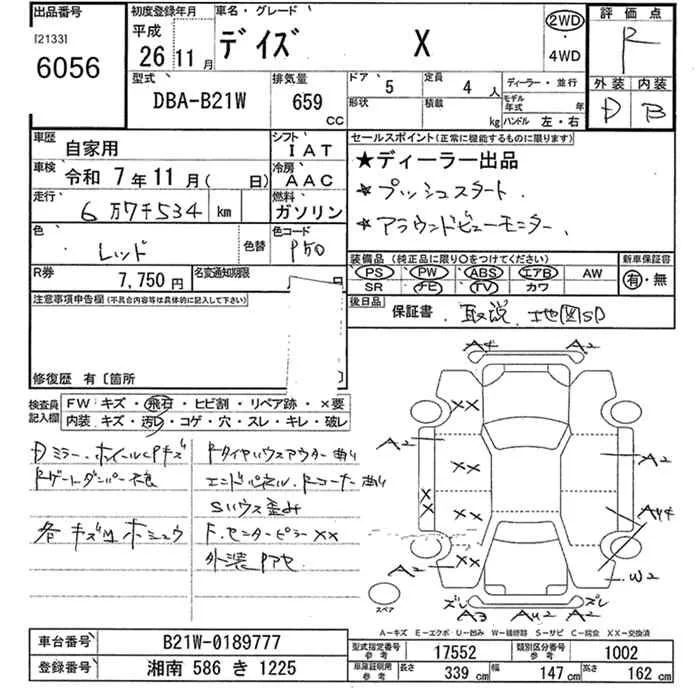 出品番号
[2133]
6056
初度登録年月
平成
26 11月
車名・グレード
デイズ X
2WD
・
4WD
評価点
R
外装 内装
D B
型式
DBA-B21W
排気量
659
CC
ドア
5
形状
定員
4人
積載
kg
ディーラー・並行
モデル年式 年
ハンドル 左・右
車歴
自家用
シフト
IAT
車検
令和 7年11月( 日)
冷房
AAC
走行
6万7千534 km
燃料
ガソリン
色
レッド
色替
色コード
P50
R券
7,750円
名変通知期限
セールスポイント(正常に機能するものに限ります)
★ディーラー出品
★プッシュスタート.
★アラウンドビューモニター.
装備品 (純正品に限り○をつけてください)
PS PW ABS エアB AW
SR ナビ TV カワ
新車保証書
有・無
後日品
保証書. 取説. 地図SD
注意事項申告欄(不具合内容等は具体的に記入して下さい)
修復歴 有〔箇所
検査員記入欄
FW:キズ・飛石・ヒビ割・リペア跡・×要
内装:キズ・汚レ・コゲ・穴・スレ・キレ・破レ
Dミラー.ホイールCPキズ
Rゲートダンパー不良
各キズ凹ホシュウ
RタイヤハウスアウターBP
エンドパネル.Rコーナー
Sハウス歪み
F.センターピラーXX
外装Pアセ
A4 A2
XX
A2 A2
XX
X
X
XX
A44
XX
A2 W2
ズレ ズレ
A3 AU2 A2
スペア
A-キズ E-エクボ U-凹み W-補修跡 S-サビ C-腐食 XX-交換済
車台番号
B21W-0189777
登録番号
湘南 586 き 1225
型式指定番号
参考
17552
類別区分番号
参考
1002
車庫証明用
参考
長さ 339 cm
幅 147 cm
高さ 162 cm